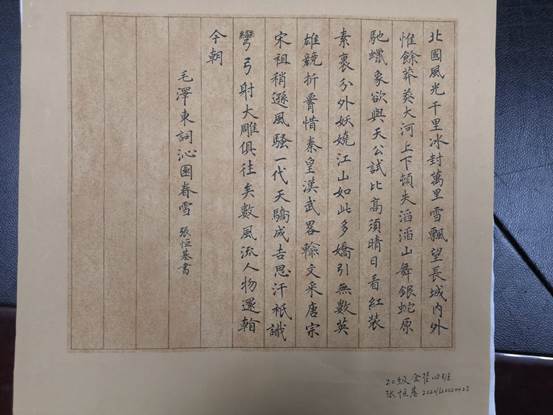 北國風光千里冰封萬里雪飄望長城內外
惟餘莽莽大河上下頓失滔滔山舞銀蛇原
馳蠟象欲與天公試比高須晴日看紅裝
素裹分外妖嬈江山如此多嬌引無數英
雄競折腰惜秦皇漢武畧輸文采唐宗
宋祖稍遜風騷一代天驕成吉思汗衹識
彎弓射大雕俱往矣數風流人物還看
今朝
毛澤東詞沁園春雪 張恒基書
20级金管四班
张恒基